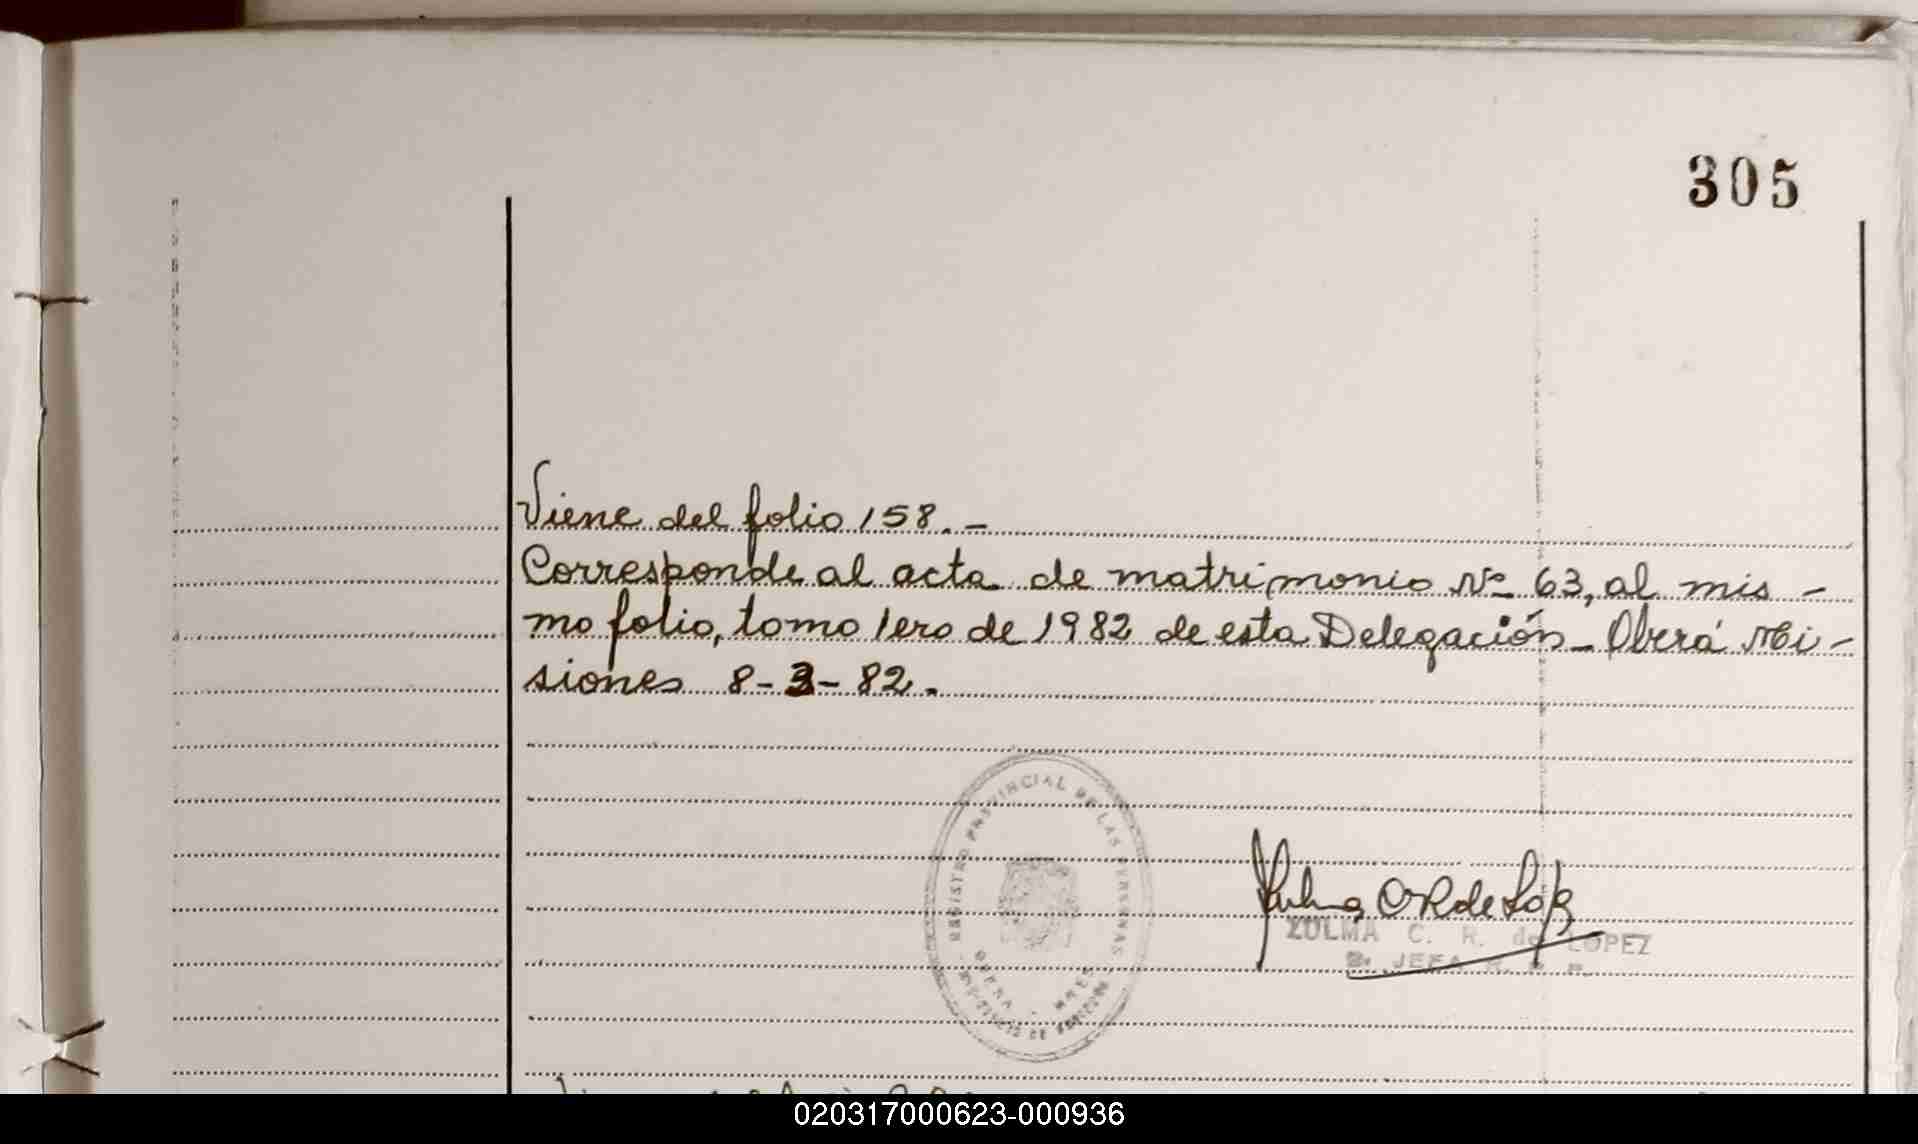 305
Viene del folio 158.-
Corresponde al acta de matrimonio Nº 63, al mis-
mo folio, tomo 1ero de 1982 de esta Delegación - Oberá Mi-
siones 8-3-82.
REGISTRO PROVINCIAL DE LAS PERSONAS
OBERA - MNES
ZULMA C. R. de LOPEZ
JEFA
020317000623-000936